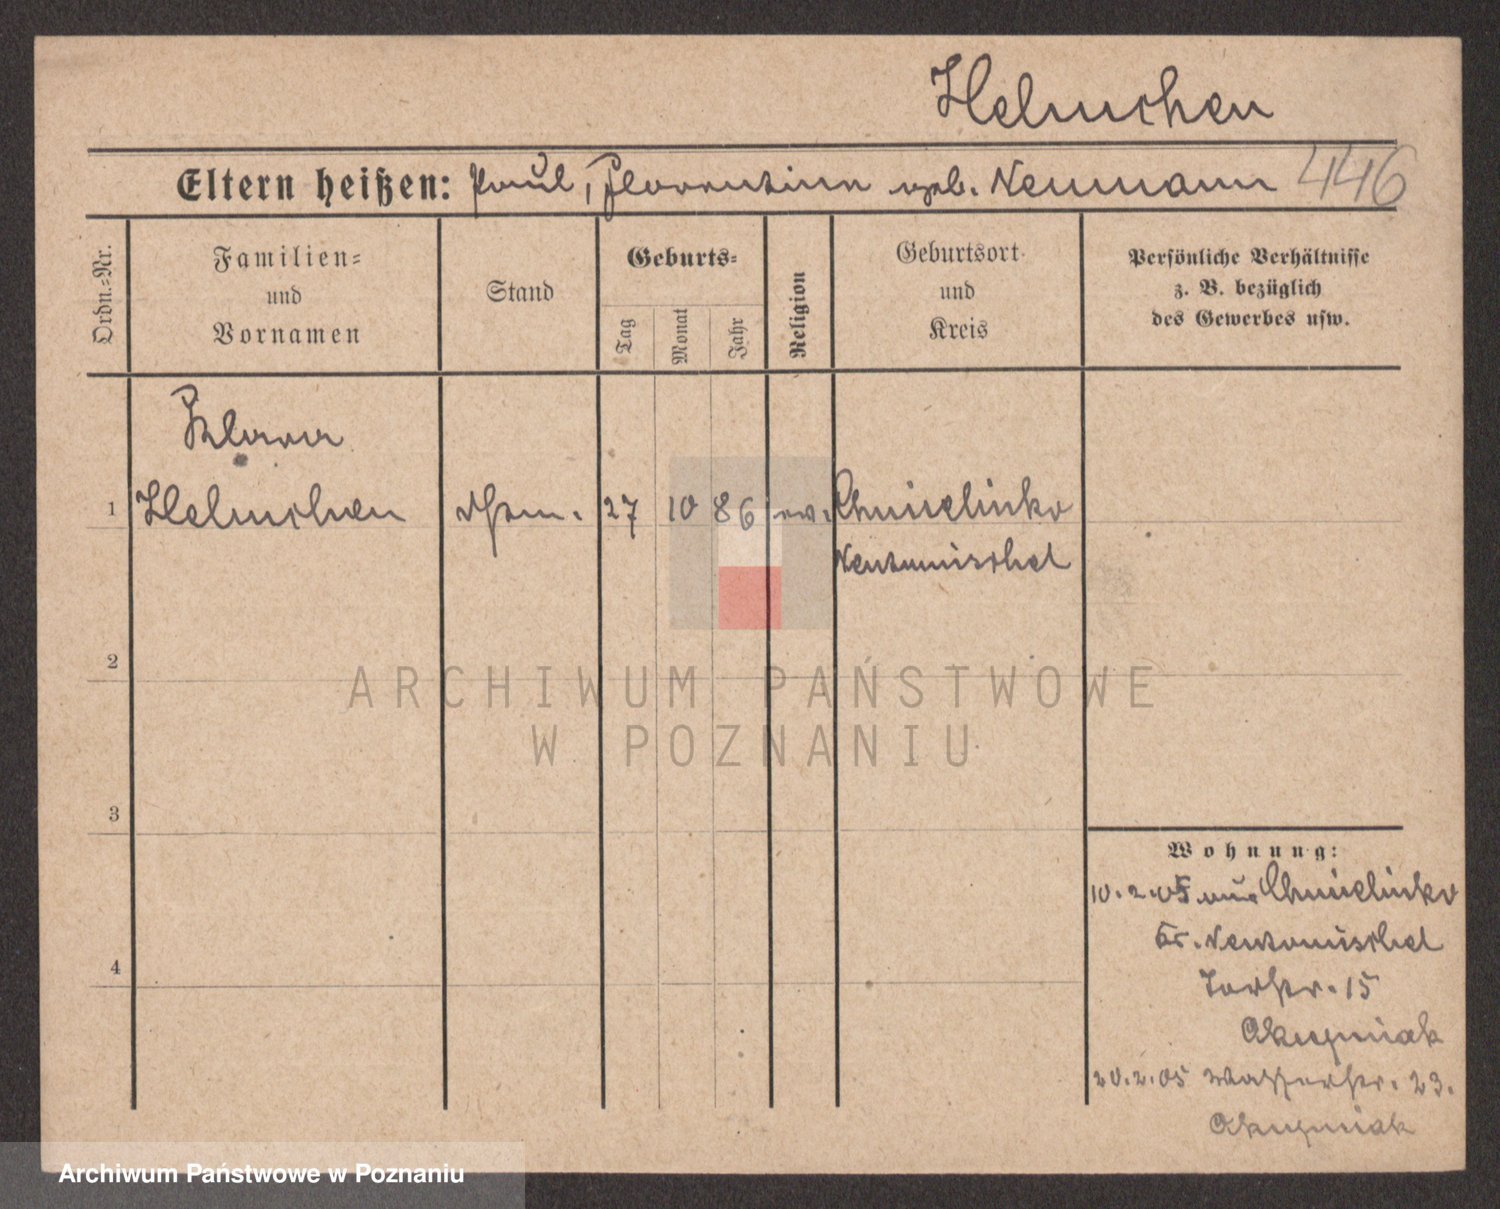 Helmchen
Eltern heißen: Paul, Florentine geb. Neumann 446
Ordn.-Nr.
Familien-
und
Vornamen
Stand
Geburts-
Tag
Monat
Jahr
Religion
Geburtsort
und
Kreis
Persönliche Verhältnisse
z. B. bezüglich
des Gewerbes usw.
Klara
1 Helmchen 27 10 86 ev. Chmielinko
Neutomischel
2
ARCHIWUM PAŃSTWOWE
W POZNANIU
3
Wohnung:
10.2.05 aus Chmielinko
Kr. Neutomischel
4
Torstr. 15
20.2.05 Wasserstr. 23.
Archiwum Państwowe w Poznaniu